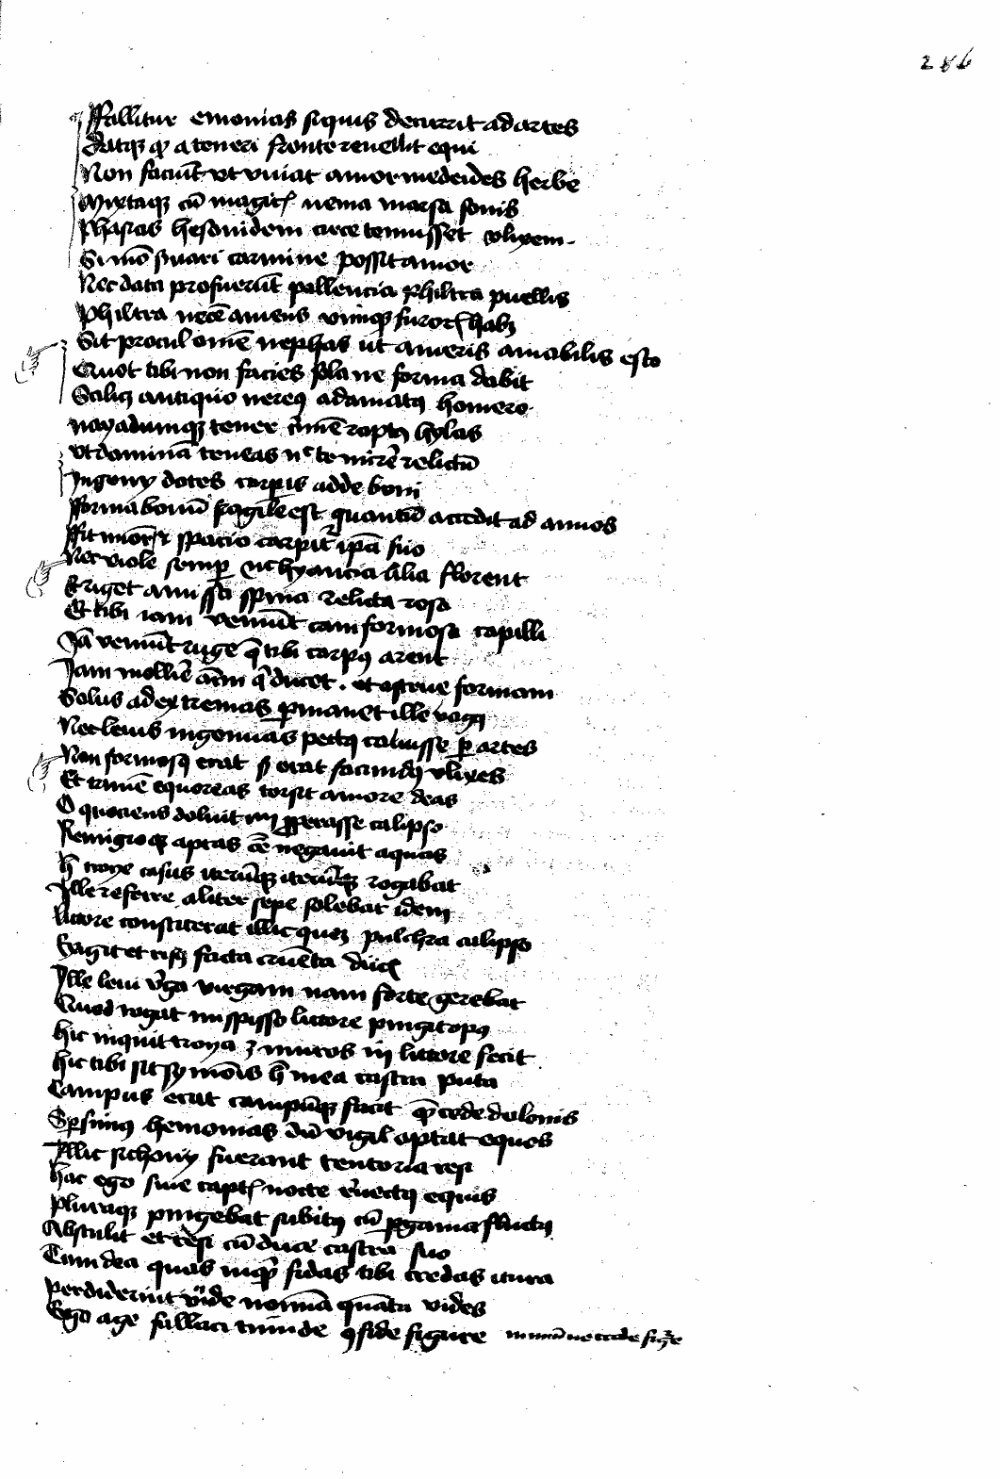 286
Fallitur emonias siquis decurrit ad artes
Datqȝ qđ a teneri fronte revellit equi
Non faciūt ut vivat amor medeides herbe
Mixtaqȝ cū magicꝭ nenia marsa sonis
Phasias hesonidem circe tenuisset ulixem
Si mō ſvari carmine possit amor
Nec data profuerūt pallencia philtra puellis
Philtra nocēt animis vimqȝ furorꝭ habȝ
Sit procul omē nephas ut ameris amabilis esto
Quot tibi non facies solave forma dabit
Sis licȝ antiquo nereꝰ adamatꝰ homero
nayadumqȝ tener crimē raptꝰ hylas
Ut dominā teneas nᶜ te mirēr relictū
Ingeny dotes corporis adde boni
Forma bonū fragile est quantū accedit ad annos
Fit minor et spacio carpitᷣ ipā suo
Nec viole semꝑ nec hyancia lilia florent
Et riget amissa spina relicta rosa
Et tibi iam venient cani formose capilli
Jā veniūt ruge q̄ tibi corpꝰ arent
Jam mollirē aīm q̄ ducet et astrue formam
Solus ad extremas ꝑmanet ille rogꝰ
Nec levis ingenuas pectꝰ coluisse ꝑ artes
Non formosꝰ erat sȝ erat facundꝰ ulixes
Et tamē equoreas torsit amore deas
O quociens doluit illū ꝓperasse calipso
Remigioqȝ aptas eē negavit aquas
hͨ troye casus iterūqȝ iterūqȝ rogabat
Ille referre aliter sepe solebat idem
Littore constiterat illic quoqȝ pulchra calipso
Exigit et risꝰ facta cruēta ducꝭ
Ille levi v̄ga virgam nam forte gerebat
Quod rogat in spisso littore pingit opꝰ
hic inquit troya ⁊ muros in littore fecit
hic tibi sit symoīs hͨ mea castra puta
Campus erat campūqȝ facit q̄ cede dolonis
Sꝑsimꝰ hemonias dū vigil optat equos
Illic sithony fuerant tentoria resi
hac ego sum captꝭ nocte revectꝰ equis
Pluraqȝ pingebat subitꝰ cū ꝑgama fluctꝰ
Abstulit et resi cū duce castra suo
Tum dea quas inqȝ fidas tibi credas itura
Perdiderint unde nomīa quāta vides
Ergo age fallaci timide ꝯfide figure